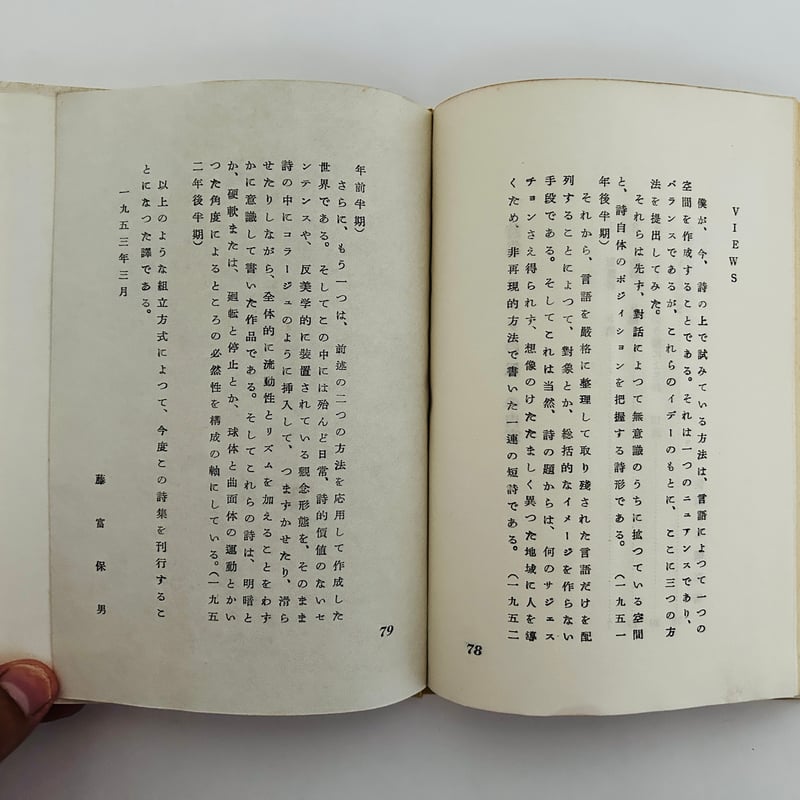 VIEWS
僕が、今、詩の上で試みている方法は、言語によつて一つの
空間を作成することである。それは一つのニュアンスであり、
バランスであるが、これらのイデーのもとに、ここに三つの方
法を提出してみた。
それらは先ず、對話によつて無意識のうちに拡つている空間
と、詩自体のポジィションを把握する詩形である。（一九五一
年後半期）
それから、言語を厳格に整理して取り残された言語だけを配
列することによつて、対象とか、総括的なイメージを作らない
手段である。そしてこれは当然、詩の題からは、何のサジェス
チョンさえ得られず、想像のけたたましく異つた地域に人を導
くため、非再現的方法で書いた一連の短詩である。（一九五二
78
年前半期）
さらに、もう一つは、前述の二つの方法を応用して作成した
世界である。そしてこの中には殆んど日常、詩的價値のないセ
ンテンスや、反美学的に装置されている観念形態を、そのまま
詩の中にコラージュのように挿入して、つまずかせたり、滑ら
せたりしながら、全体的に流動性とリズムを加えることをわず
かに意識して書いた作品である。そしてこれらの詩は、明暗と
か、硬軟または、廻転と停止とか、球体と曲面体の運動とかい
つた角度によるところの必然性を構成の軸にしている。（一九五
二年後半期）
以上のような組立方式によつて、今度この詩集を刊行するこ
とになつた譯である。
一九五三年三月
藤富保男
79